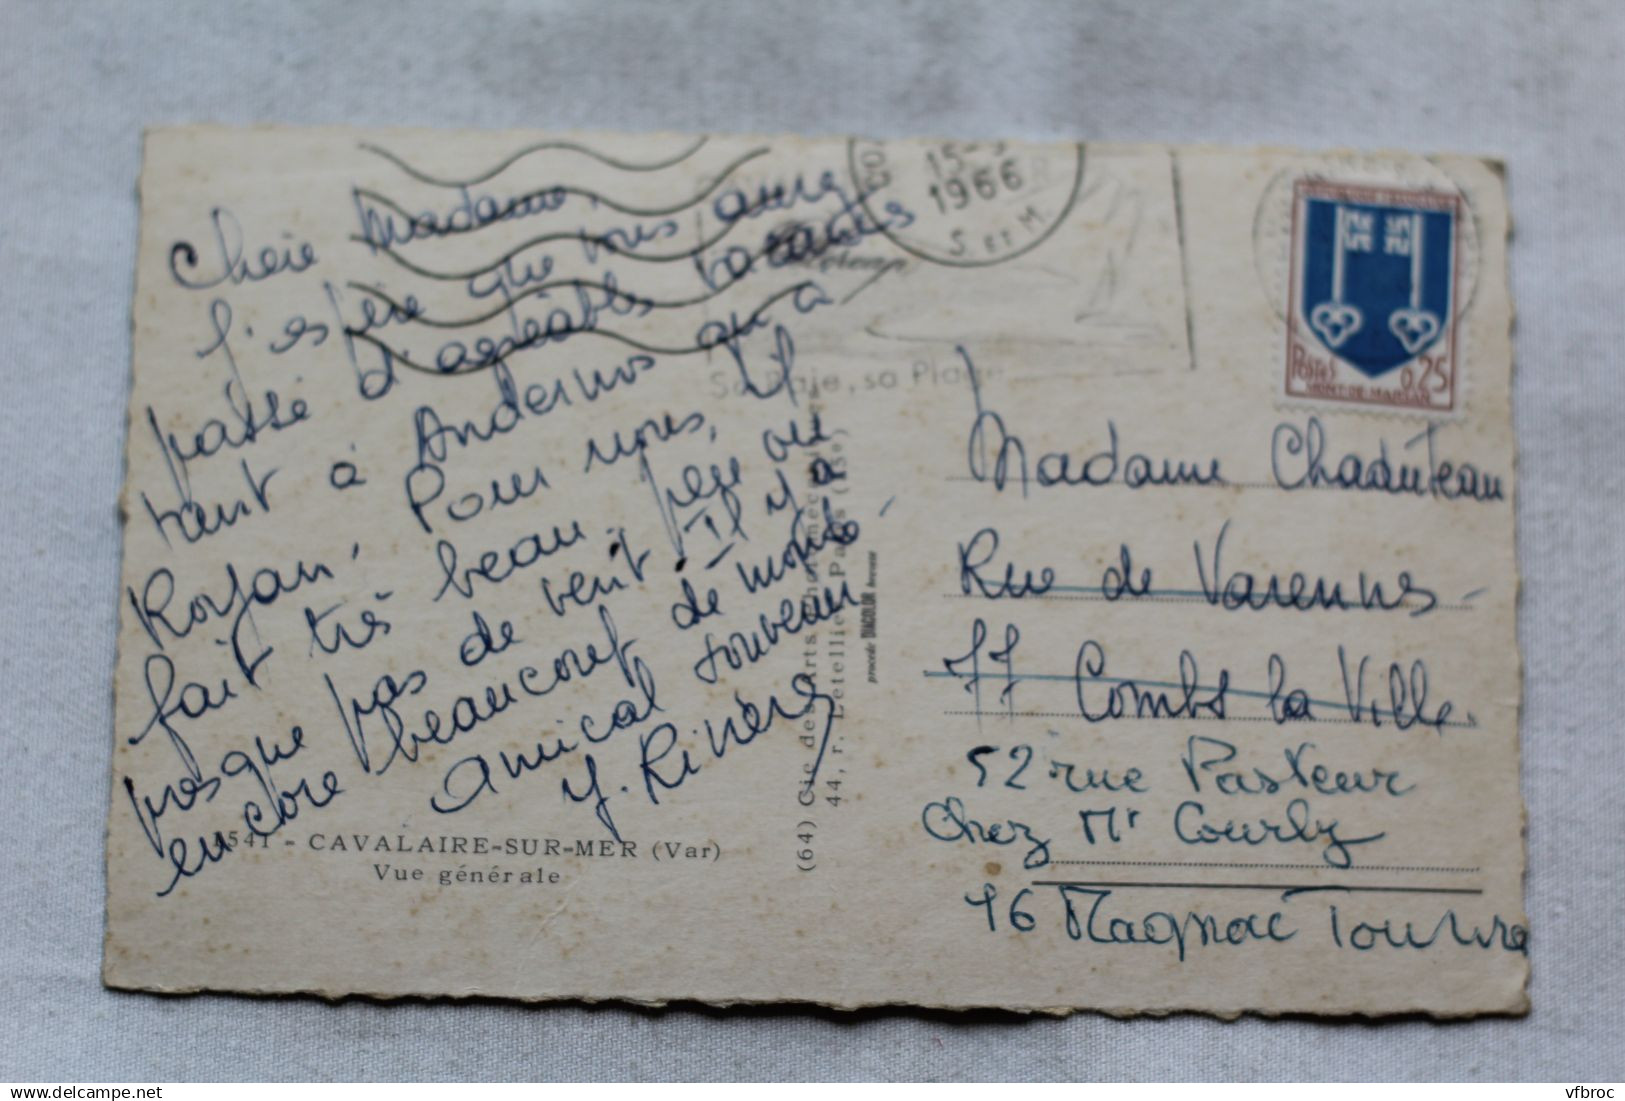 Cheie Madame,
J'espère que vous avez
passé d'agréables vacances
tant à Andernos qu'à
Royan. Pour nous, il
fait très beau. peu ou
presque pas de vent. Il y a
encore beaucoup de monde.
Amical souvenir
Y. Rivière
541 - CAVALAIRE-SUR-MER (Var)
Vue générale
(64) Cie des Arts Photomécaniques
44, r. Letellier Paris (15e)
procédé DIAGOLOR breveté
15-
1966
S. et M.
Sa Baie, sa Plage
POSTES 0,25
MONT-DE-MARSAN
Madame Chaduteau
Rue de Varennes
77 Combs la Ville.
52 rue Pasteur
Chez Mr Courby
16 Magnac Touvre
vfbroc